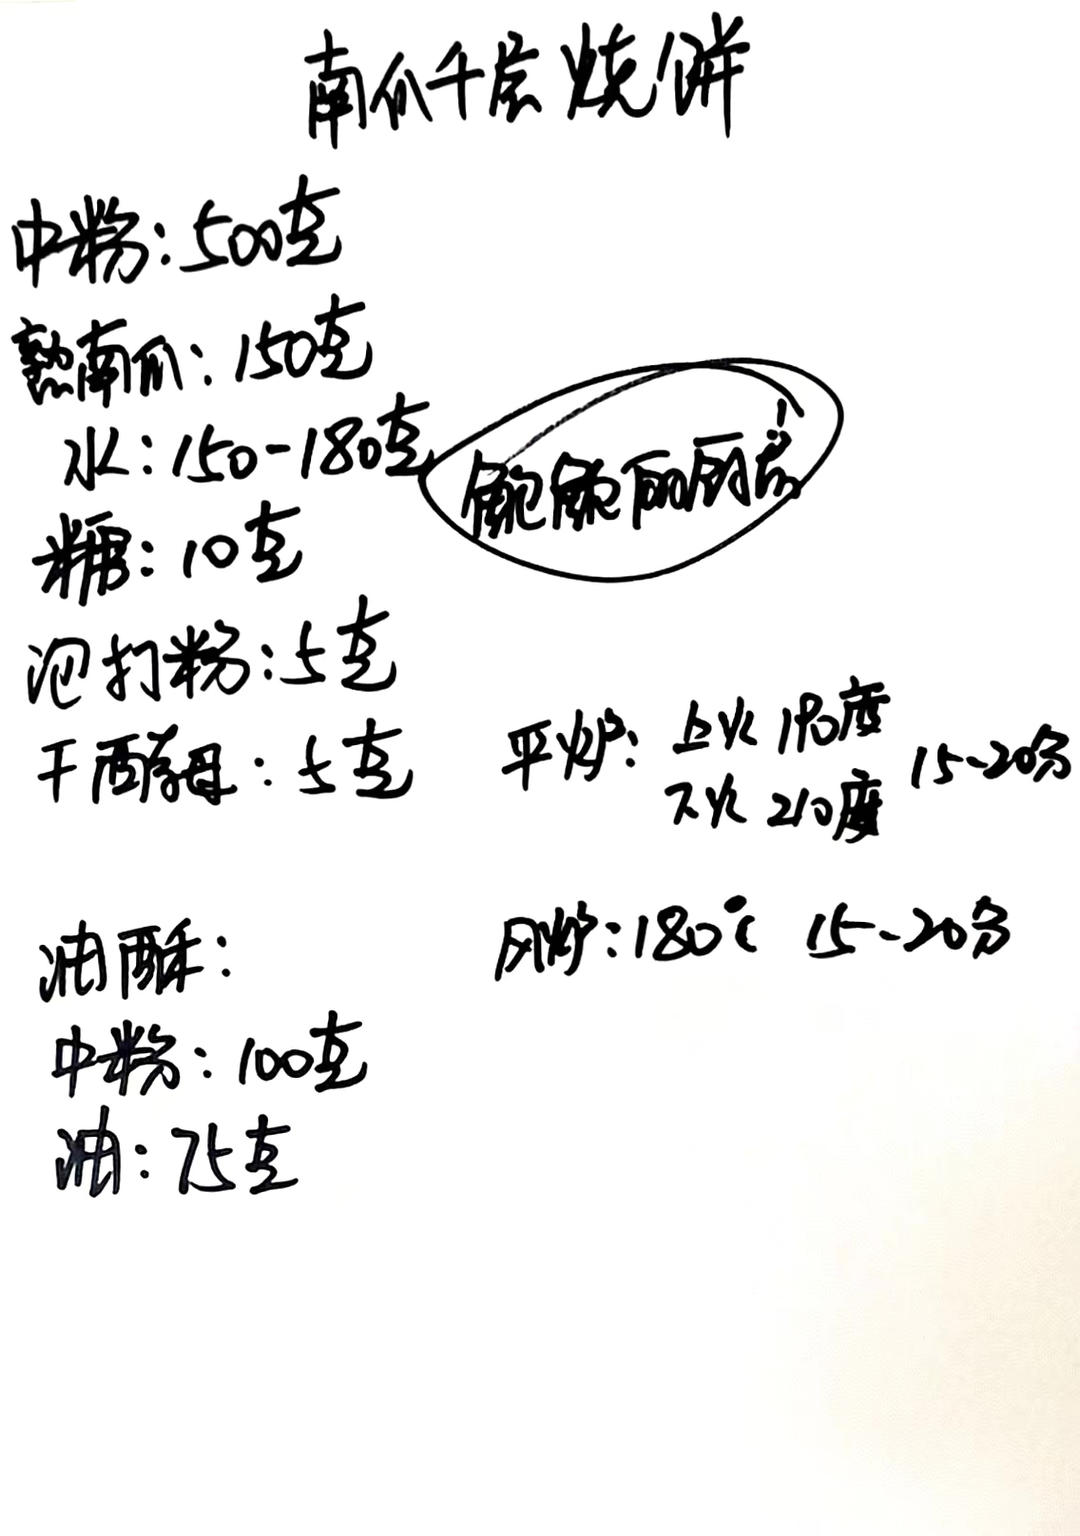 南瓜千层烧饼
中粉：500克
熟南瓜：150克
水：150-180克
糖：10克
泡打粉：5克
干酵母：5克
平炉：上火190度
下火210度
15-20分
油酥：
中粉：100克
油：75克
风炉：180℃ 15-20分